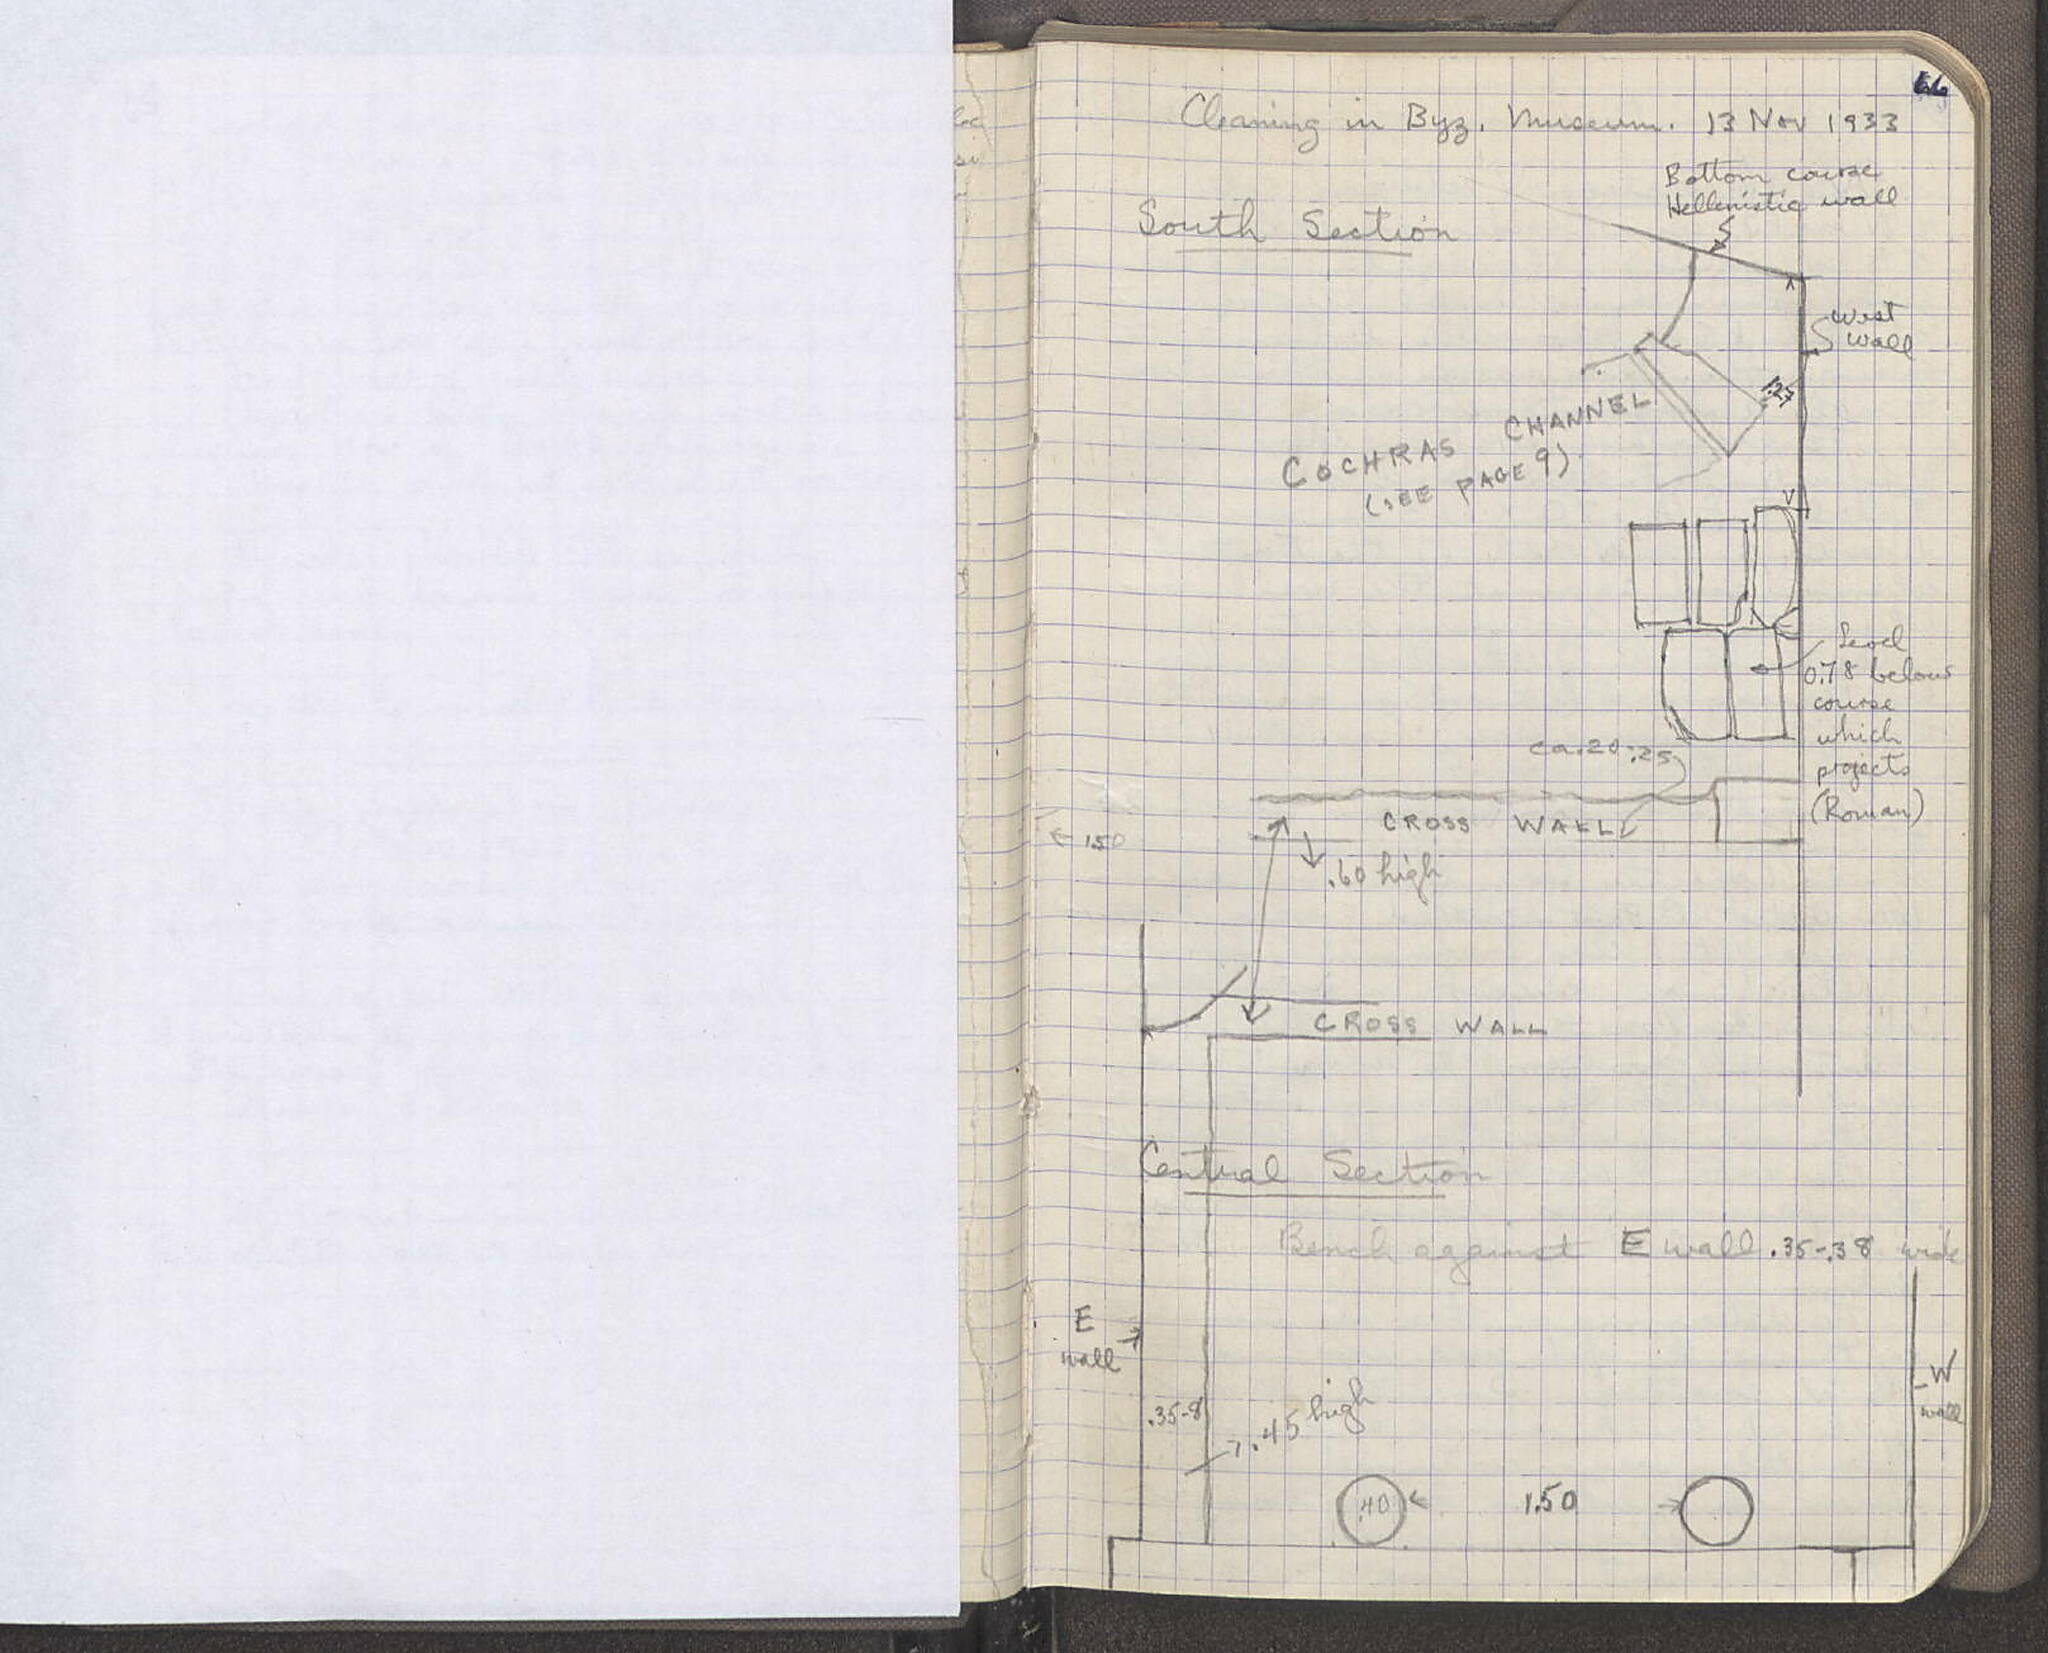 66
Cleaning in Byz. Museum. 13 Nov 1933
Bottom course
Hellenistic wall
South Section
West
wall
1.27
COCHRAS CHANNEL
(SEE PAGE 9)
Level
0.78 below
course
which
projects
(Roman)
ca .20-.25
CROSS WALL
1.50
.60 high
CROSS WALL
Central Section
Bench against E wall .35-.38 wide
E
wall
W
wall
.35-8
.45 high
.40
1.50